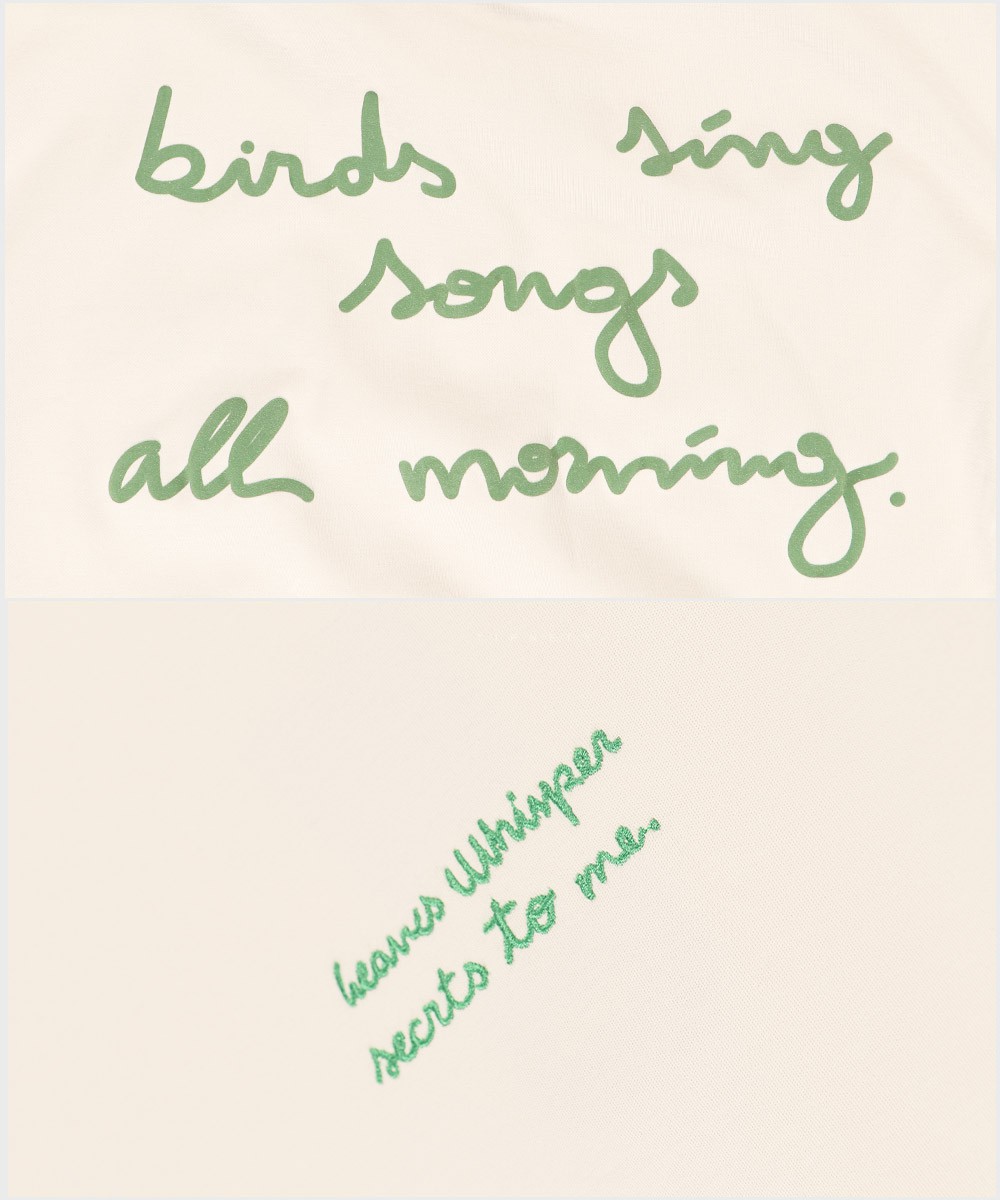 birds sing
songs
all morning.
leaves whisper
secrts to me.